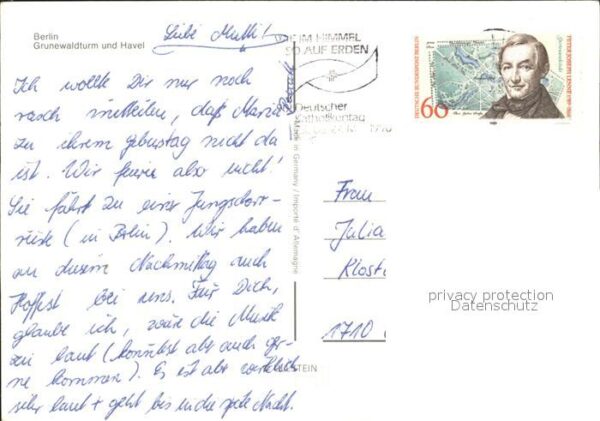 Berlin
Grunewaldturm und Havel
Liebe Mutti!
Ich wollte Dir nur noch
rasch mitteilen, daß Maria
zu ihrem Geburtstag nicht da
ist. Wir feiern also nicht!
Sie fährt zu einer
(in Berlin). Wir haben
an diesem Nachmittag auch
Hoffest bei uns. Für Dich,
glaube ich, wäre die Musik
zu laut (könntest aber auch ger-
ne kommen). Es ist aber wirklich
sehr laut + geht bis in die späte Nacht.
WIE IM HIMMEL
SO AUF ERDEN
Deutscher
Katholikentag
Made in Germany / Importé d'Allemagne
STEIN
60
DEUTSCHE BUNDESPOST BERLIN
PETER JOSEPH LENNÉ 1789-1866
Frau
Julia
Klost
1710
privacy protection
Datenschutz